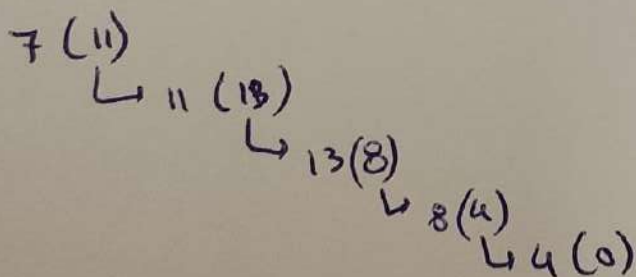 7 (11)
↳ 11 (13)
↳ 13(8)
↳ 8(4)
↳ 4 (0)